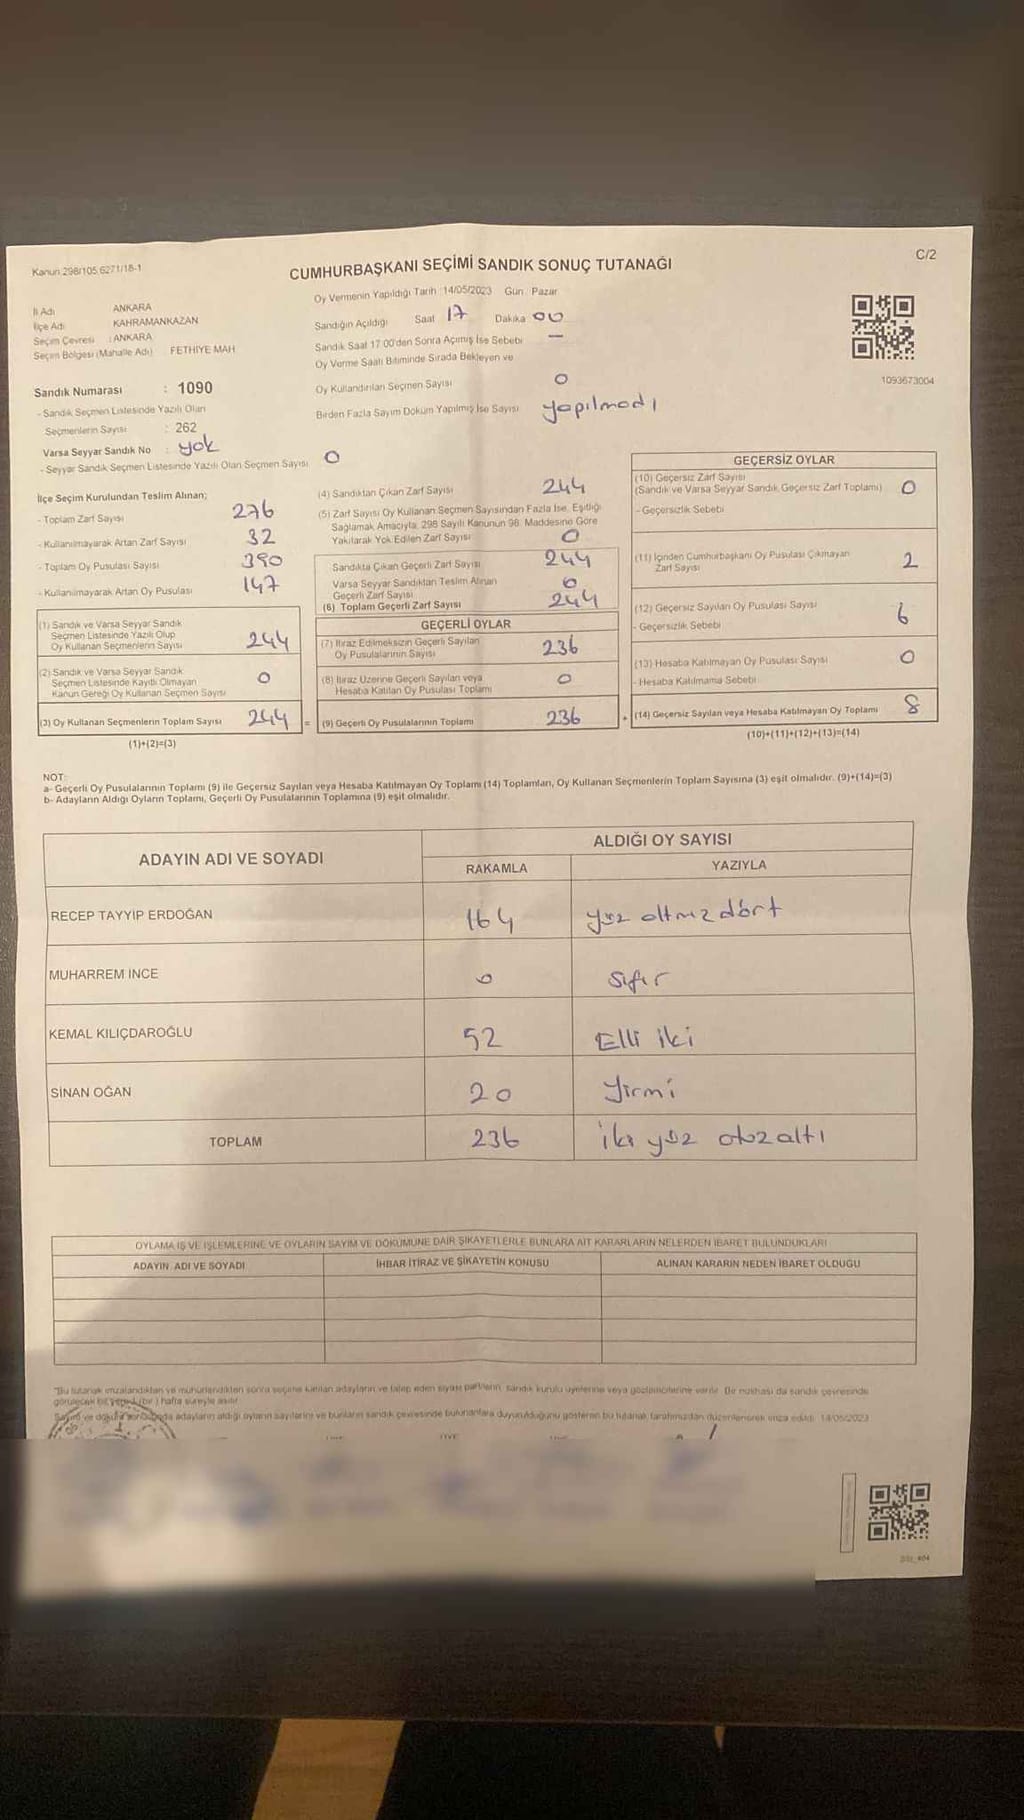 Kanun 298/105,6271/18-1
C/2
CUMHURBAŞKANI SEÇİMİ SANDIK SONUÇ TUTANAĞI
Oy Vermenin Yapıldığı Tarih :14/05/2023 Gün : Pazar
İl Adı ANKARA
İlçe Adı KAHRAMANKAZAN
Seçim Çevresi : ANKARA
Seçim Bölgesi (Mahalle Adı) FETHİYE MAH
Sandık Numarası : 1090
- Sandık Seçmen Listesinde Yazılı Olan
Seçmenlerin Sayısı : 262
Varsa Seyyar Sandık No : yok
- Seyyar Sandık Seçmen Listesinde Yazılı Olan Seçmen Sayısı 0
Sandığın Açıldığı Saat 17 Dakika 00
Sandık Saat 17:00'den Sonra Açılmış İse Sebebi —
Oy Verme Saati Bitiminde Sırada Bekleyen ve
Oy Kullandırılan Seçmen Sayısı 0
Birden Fazla Sayım Döküm Yapılmış İse Sayısı yapılmadı
1093673004
İlçe Seçim Kurulundan Teslim Alınan;
- Toplam Zarf Sayısı 276
- Kullanılmayarak Artan Zarf Sayısı 32
- Toplam Oy Pusulası Sayısı 390
- Kullanılmayarak Artan Oy Pusulası 147
(1) Sandık ve Varsa Seyyar Sandık
Seçmen Listesinde Yazılı Olup
Oy Kullanan Seçmenlerin Sayısı 244
(2) Sandık ve Varsa Seyyar Sandık
Seçmen Listesinde Kayıtlı Olmayan
Kanun Gereği Oy Kullanan Seçmen Sayısı 0
(3) Oy Kullanan Seçmenlerin Toplam Sayısı 244 =
(1)+(2)=(3)
(4) Sandıktan Çıkan Zarf Sayısı 244
(5) Zarf Sayısı Oy Kullanan Seçmen Sayısından Fazla İse, Eşitliği
Sağlamak Amacıyla, 298 Sayılı Kanunun 98. Maddesine Göre
Yakılarak Yok Edilen Zarf Sayısı 0
Sandıkta Çıkan Geçerli Zarf Sayısı 244
Varsa Seyyar Sandıktan Teslim Alınan
Geçerli Zarf Sayısı 0
(6) Toplam Geçerli Zarf Sayısı 244
GEÇERLİ OYLAR
(7) İtiraz Edilmeksizin Geçerli Sayılan
Oy Pusulalarının Sayısı 236
(8) İtiraz Üzerine Geçerli Sayılan veya
Hesaba Katılan Oy Pusulası Toplamı 0
(9) Geçerli Oy Pusulalarının Toplamı 236 +
GEÇERSİZ OYLAR
(10) Geçersiz Zarf Sayısı
(Sandık ve Varsa Seyyar Sandık Geçersiz Zarf Toplamı) 0
- Geçersizlik Sebebi
(11) İçinden Cumhurbaşkanı Oy Pusulası Çıkmayan
Zarf Sayısı 2
(12) Geçersiz Sayılan Oy Pusulası Sayısı 6
- Geçersizlik Sebebi
(13) Hesaba Katılmayan Oy Pusulası Sayısı 0
- Hesaba Katılmama Sebebi
(14) Geçersiz Sayılan veya Hesaba Katılmayan Oy Toplamı 8
(10)+(11)+(12)+(13)=(14)
NOT:
a- Geçerli Oy Pusulalarının Toplamı (9) ile Geçersiz Sayılan veya Hesaba Katılmayan Oy Toplamı (14) Toplamları, Oy Kullanan Seçmenlerin Toplam Sayısına (3) eşit olmalıdır. (9)+(14)=(3)
b- Adayların Aldığı Oyların Toplamı, Geçerli Oy Pusulalarının Toplamına (9) eşit olmalıdır.
ADAYIN ADI VE SOYADI ALDIĞI OY SAYISI
RAKAMLA YAZIYLA
RECEP TAYYİP ERDOĞAN 164 yüz altmız dört
MUHARREM İNCE 0 sıfır
KEMAL KILIÇDAROĞLU 52 Elli iki
SİNAN OĞAN 20 Yirmi
TOPLAM 236 iki yüz otuz altı
OYLAMA İŞ VE İŞLEMLERİNE VE OYLARIN SAYIM VE DÖKÜMÜNE DAİR ŞİKAYETLERLE BUNLARA AİT KARARLARIN NELERDEN İBARET BULUNDUKLARI
ADAYIN ADI VE SOYADI İHBAR İTİRAZ VE ŞİKAYETİN KONUSU ALINAN KARARIN NEDEN İBARET OLDUĞU
"Bu tutanak imzalandıktan ve mühürlendikten sonra seçime katılan adayların ve talep eden siyasi partilerin, sandık kurulu üyelerine veya gözlemcilerine verilir. Bir nüshası da sandık çevresinde
görülecek bir yere (bir) hafta süreyle asılır.
Sayım ve döküm sonunda adayların aldığı oyların sayılarını ve bunların sandık çevresinde bulunanlara duyurulduğunu gösteren bu tutanak tarafımızdan düzenlenerek imza edildi. 14/05/2023